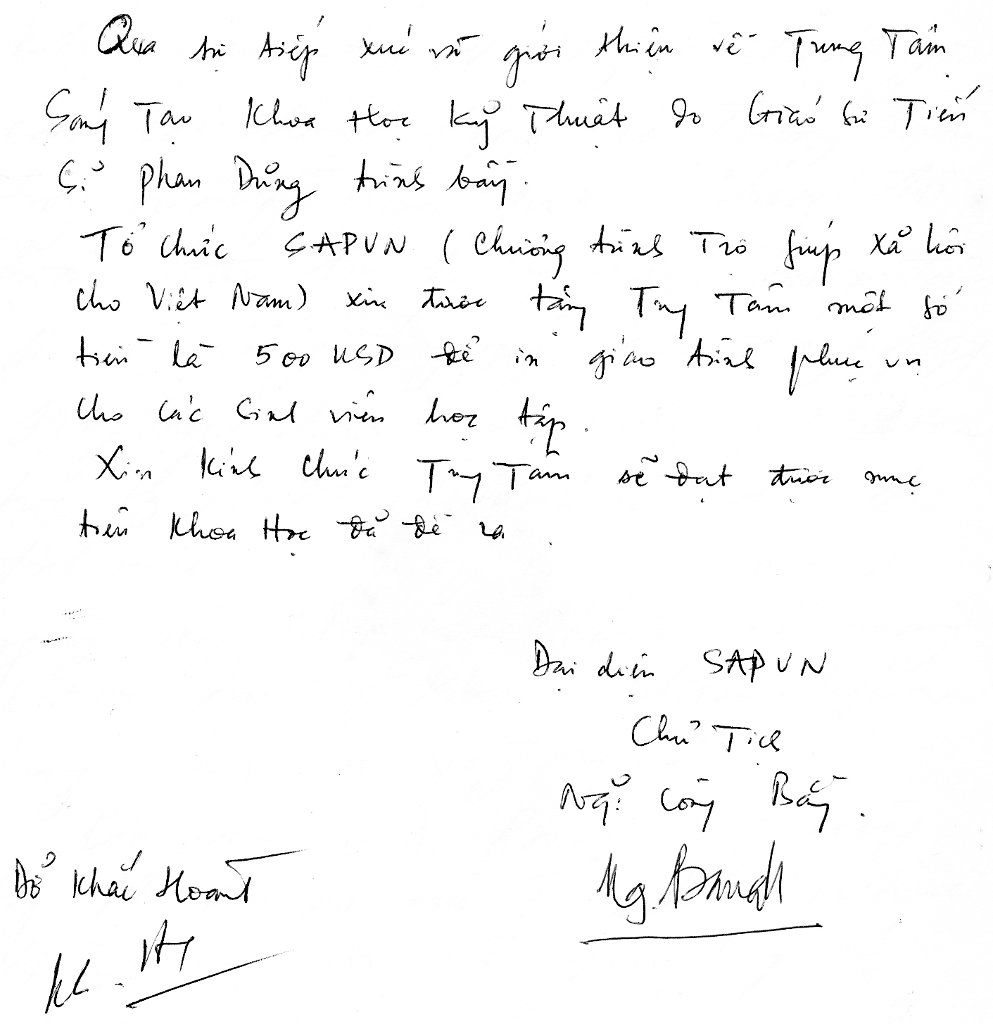 Qua sự tiếp xúc và giới thiệu về Trung Tâm
Sáng Tạo Khoa Học Kỹ Thuật do Giáo sư Tiến
Sỉ Phan Dủng trình bầy.
Tổ chức SAPVN (Chương trình Trợ giúp Xả hội
cho Việt Nam) xin được tặng Trg Tâm một số
tiền là 500 USD để in giáo trình phục vụ
cho các sinh viên học tập.
Xin kính chúc Trg Tâm sẽ đạt được mục
tiêu Khoa Học đả đề ra.
Đại diện SAPVN
Chủ Tịch
Công
Đổ Khắc